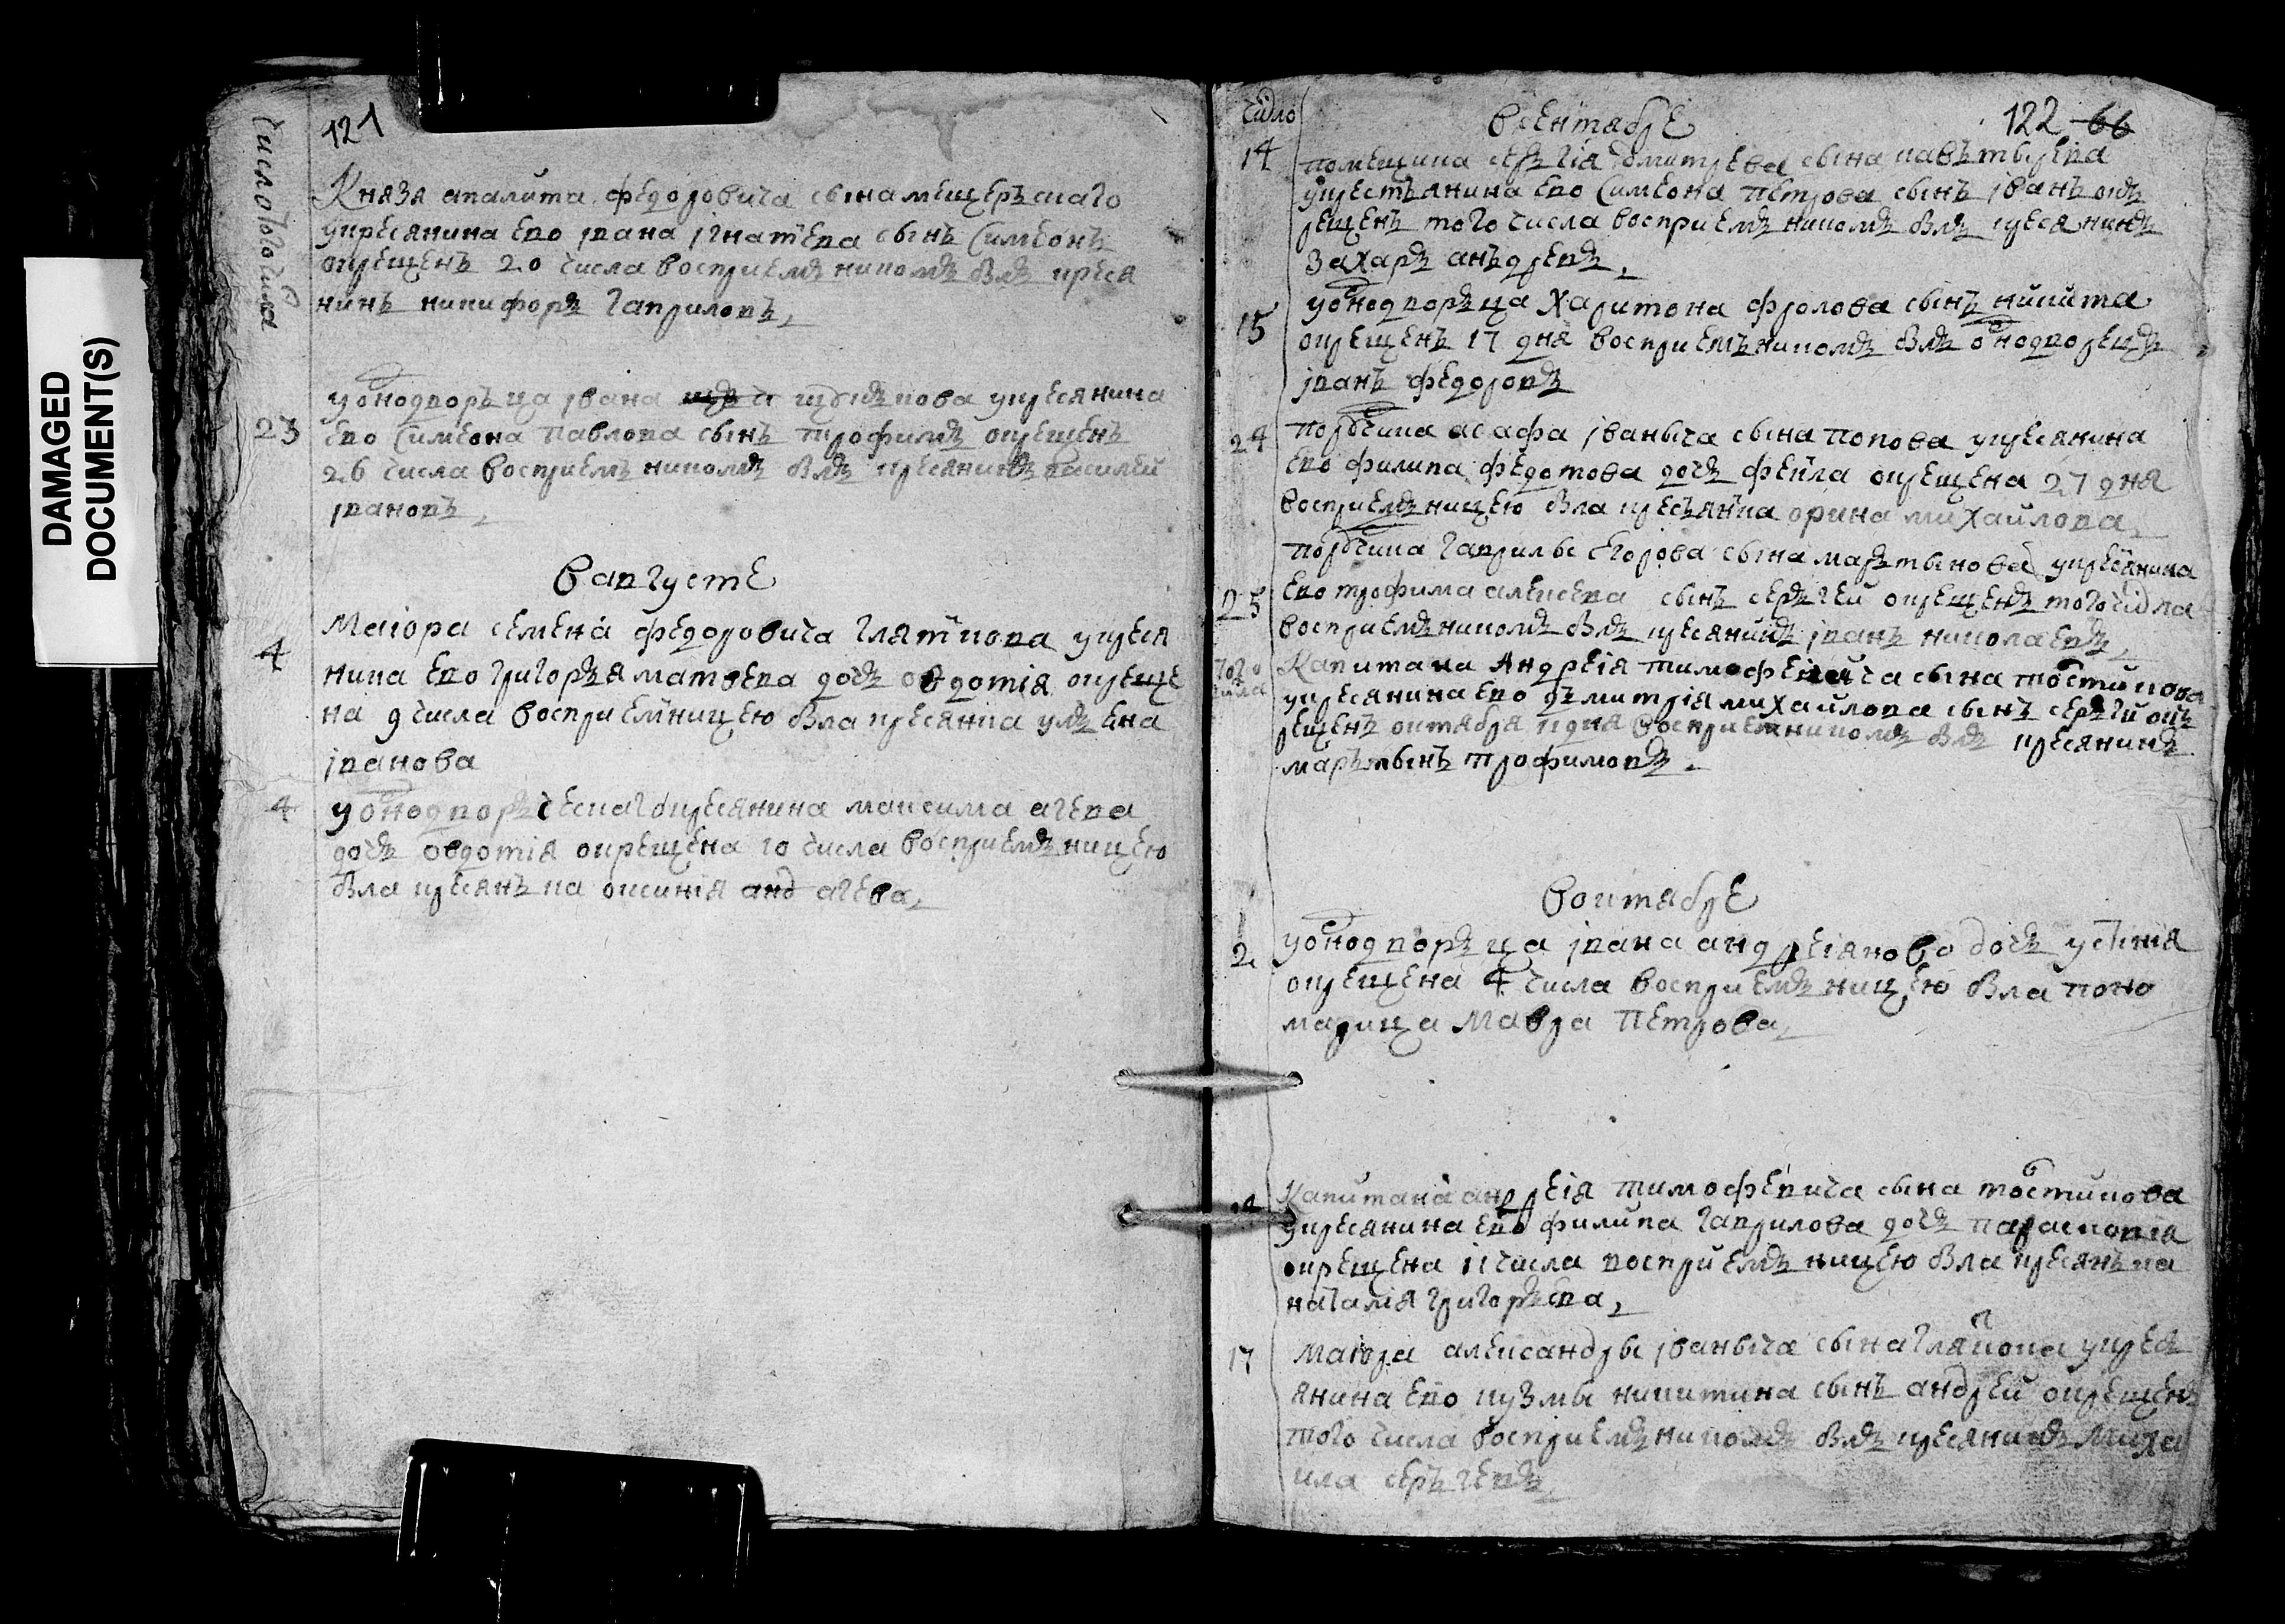 DAMAGED
DOCUMENT(S)
121
число того числа
Князя аполита федоровича сына мещеръскаго
укресянина ево јвана јгнатева сынъ симеонъ
окрещенъ 20 числа восприемъникомъ былъ кресья
нинъ никифоръ гавриловъ,
23
уоднодворъца јвана щъ щукова укресянина
ево симеона павлова сынъ трофимъ окрещенъ
26 числа восприемъникомъ былъ кресянинъ василей
јвановъ,
вавгусте
4
Маіора семена федоровича гляткова укреся
нина ево григоръя матвева дочъ овдотія окреще
на 9 числа восприемницею была кресянка улъена
јванова
4
уоднодворъческаго кресянина максима агева
дочъ овдотія окрещена 10 числа восприемъницею
была кресянъка оксинія анд агева,
число
всентябре
122 66
14
помещика серъгія дмитрева сына
укрестьянина ево симеона петрова сынъ јванъ окъ
рещенъ того числа восприемъникомъ былъ кресянинъ
захаръ анъдревъ,
15
уоднодворъца харитона фролова сынъ никита
окрещенъ 17 дня восприемъникомъ былъ однодворецъ
јванъ федоровъ
24
порутчика асафа јваныча сына попова укресянина
ево филипа федотова дочъ фекла окрещена 27 дня
восприемъницею была кресъянка орина михайлова,
порутчика гаврилы егорова сына маръты­нова укресянина
25
ево трофима алексева сынъ серъгей окрещенъ того числа
восприемъникомъ былъ кресянинъ јванъ николаевъ,
того
числа
Капитана Андреія тимофеича сына толстикова
укресянина ево дъмитрія михайлова сынъ серъги окъ
рещенъ октября дня восприемникомъ былъ кресянинъ
маръты­нъ трофимовъ.
воктябре
2
уоднодворъца јвана андреіяново дочъ устинія
окрещена 4 числа восприемъницею была поно
марица мавра петрова,
Капитана андреія тимофевича сына толстикова
укресянина ево филипа гаврилова дочъ парасковія
окрещена 11 числа восприемъницею была кресянъка
наталія григоръева,
17
маіора александры јваныча сына гляткова укрес
янина ево кузмы никитина сынъ андрей окрещенъ
того числа восприемъникомъ былъ кресянинъ миха
ила серъгевъ